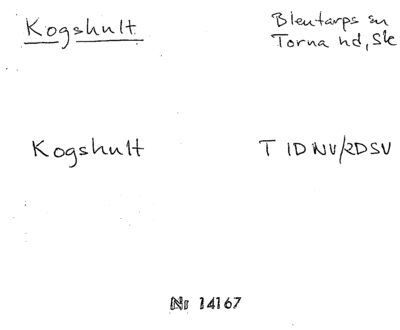 Kogshult
Blentarps sn
Torna hd, Sk
Kogshult
T 1D NV/2D SV
Nr 14167